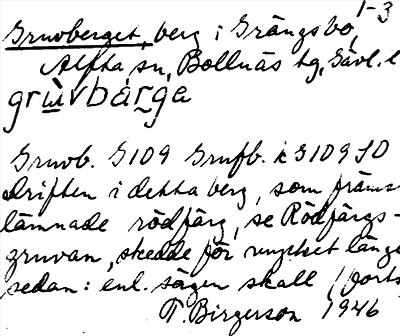 1-3
Gruvberget, berg i Grängsbo,
Alfta sn, Bollnäs tg, Gävl. l
grùvbárga
Gruvb. G109 Grufb. k G109 SO
Driften i detta berg, som främs
lämnade rödfärg, se Rödfärgs-
gruvan, skedde för mycket länge
sedan: enl. sägen skall
T. Birgerson 1946